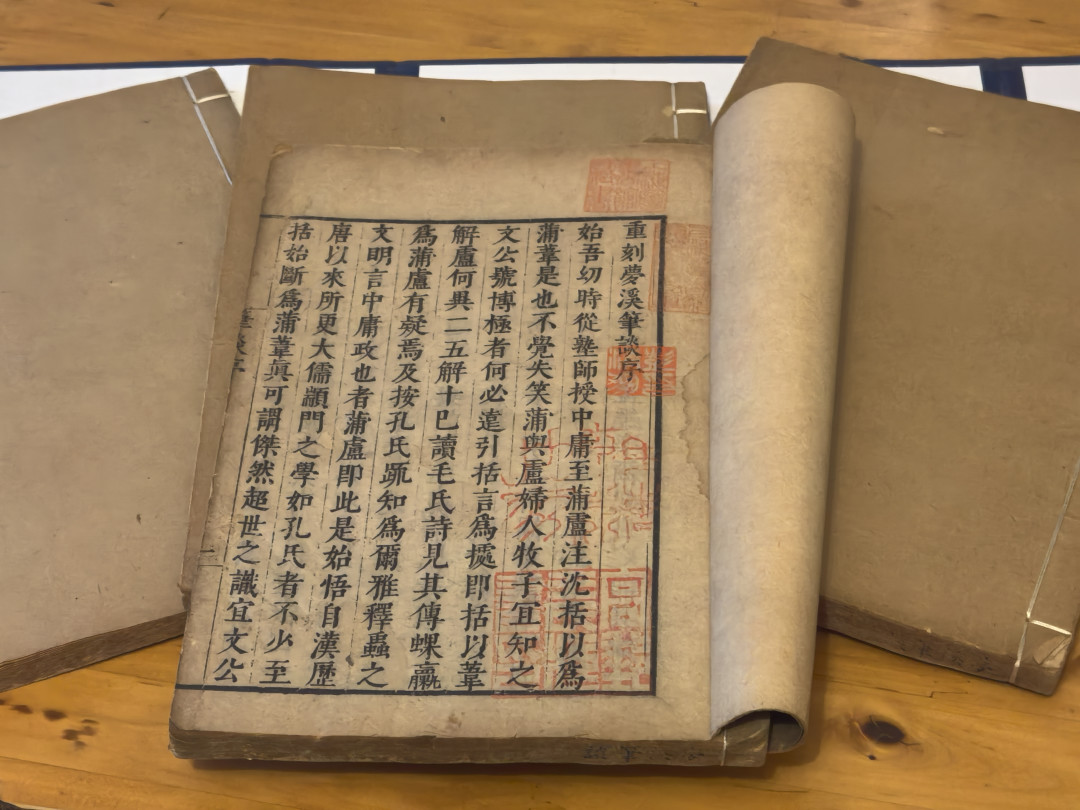 重刻夢溪筆談序
始吾幼時從塾師授中庸至蒲盧注沈括以爲
蒲葦是也不覺失笑蒲與盧婦人牧子宜知之
文公號博極者何必遠引括言爲據即括以葦
解盧何異二五解十已讀毛氏詩見其傳螺蠃
爲蒲盧有疑焉及按孔氏疏知爲爾雅釋蟲之
文明言中庸政也者蒲盧即此是始悟自漢歷
唐以來所更大儒顓門之學如孔氏者不少至
括始斷爲蒲葦眞可謂傑然超世之識宜文公
筆談序